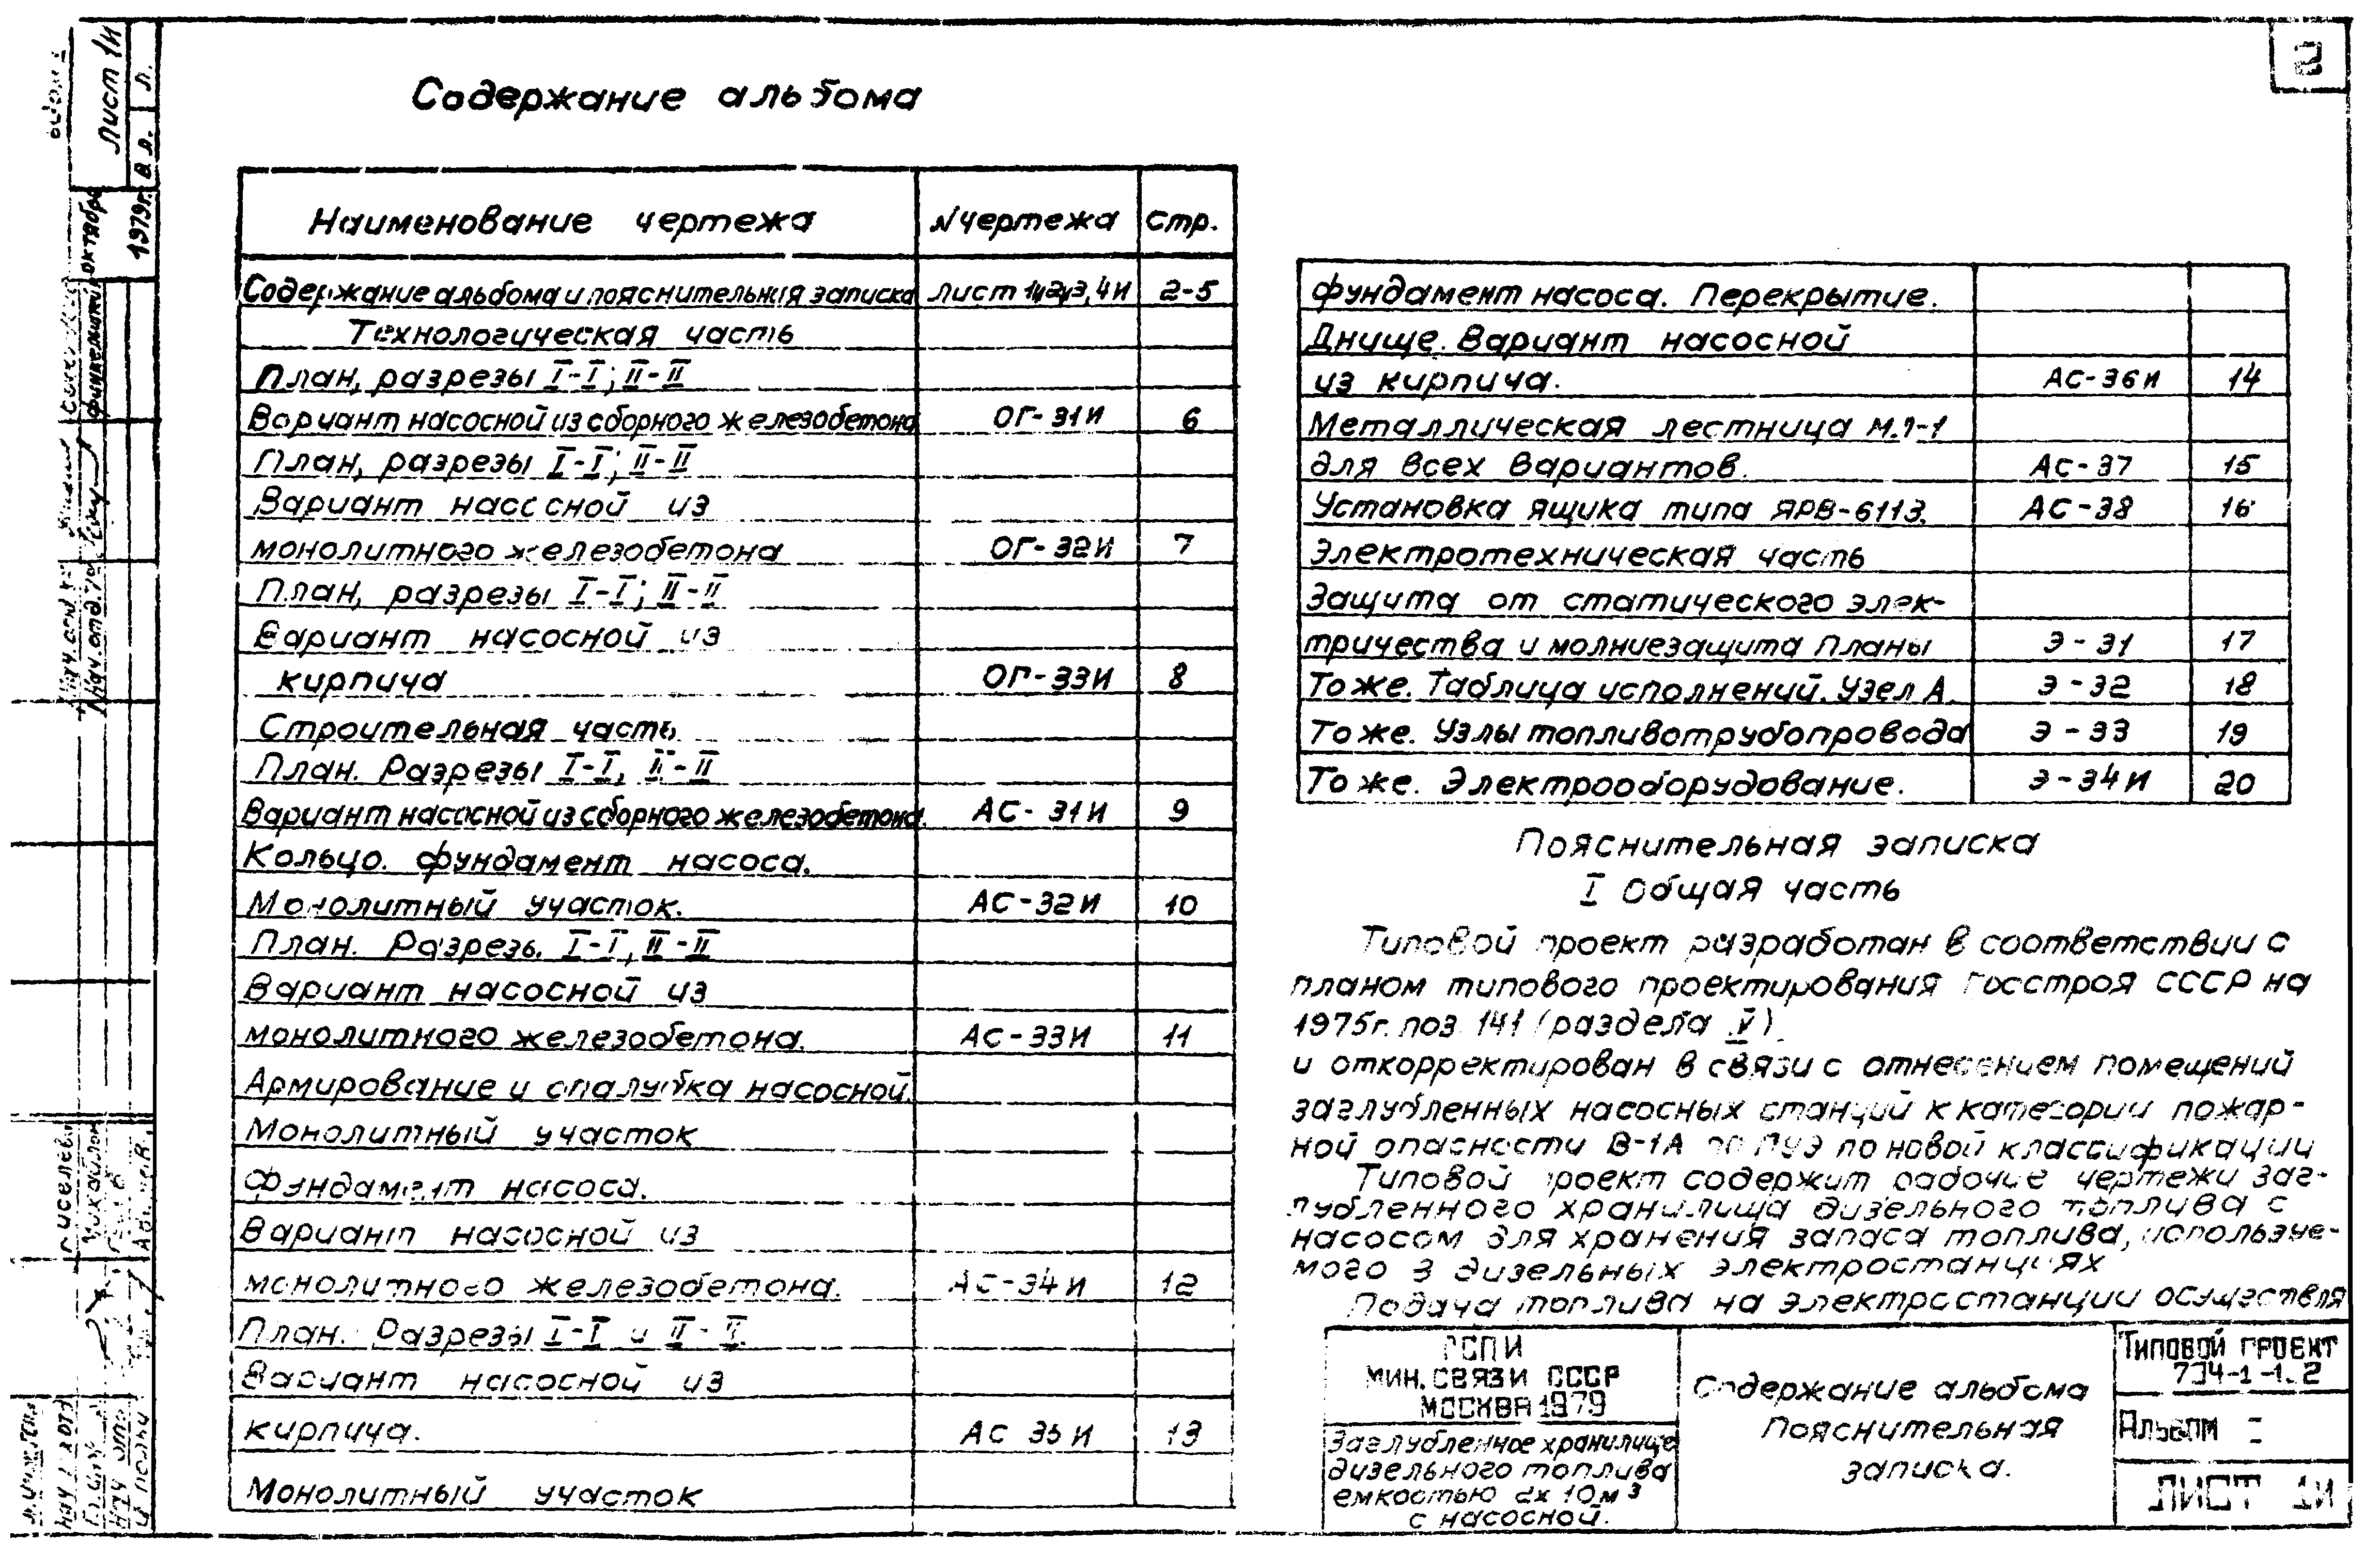 2
Содержание альбома
Наименование чертежа № чертежа Стр.
Содержание альбома и пояснительная записка лист 1и,2и,3,4и 2-5
Технологическая часть
План, разрезы I-I; II-II
Вариант насосной из сборного железобетона ОГ-31И 6
План, разрезы I-I; II-II
Вариант насосной из
монолитного железобетона ОГ-32И 7
План, разрезы I-I; II-II
Вариант насосной из
кирпича ОГ-33И 8
Строительная часть
План. Разрезы I-I, II-II
Вариант насосной из сборного железобетона. АС-31И 9
Кольцо. Фундамент насоса.
Монолитный участок. АС-32И 10
План. Разрезы I-I, II-II
Вариант насосной из
монолитного железобетона. АС-33И 11
Армирование и опалубка насосной.
Монолитный участок
Фундамент насоса.
Вариант насосной из
монолитного железобетона. АС-34И 12
План. Разрезы I-I и II-II
Вариант насосной из
кирпича. АС 35И 13
Монолитный участок
фундамент насоса. Перекрытие.
Днище. Вариант насосной
из кирпича. АС-36И 14
Металлическая лестница
для всех вариантов. АС-37 15
Установка ящика типа ЯРВ-6113. АС-38 16
Электротехническая часть
Защита от статического элек-
тричества и молниезащита Планы Э-31 17
То же. Таблица исполнений. Узел А. Э-32 18
То же. Узлы топливотрубопровода Э-33 19
То же. Электрооборудование. Э-34И 20
Пояснительная записка
I Общая часть
Типовой проект разработан в соответствии с
планом типового проектирования Госстроя СССР на
1975г. поз. 141 (раздела V)
и откорректирован в связи с отнесением помещений
заглубленных насосных станций к категории пожар-
ной опасности В-1А по ПУЭ по новой классификации
Типовой проект содержит рабочие чертежи заг-
лубленного хранилища дизельного топлива с
насосом для хранения запаса топлива, используе-
мого в дизельных электростанциях
Подача топлива на электростанции осуществля
ГСПИ
МИН. СВЯЗИ СССР
МОСКВА 1979
Заглубленное хранилище
дизельного топлива
емкостью 2х10м³
с насосной.
Содержание альбома
Пояснительная
записка.
Типовой проект
704-1-1.2
Альбом
ЛИСТ 1И
Лист 1И
октябрь
1979г.
Нач. отд.
Киселева
Михайлов